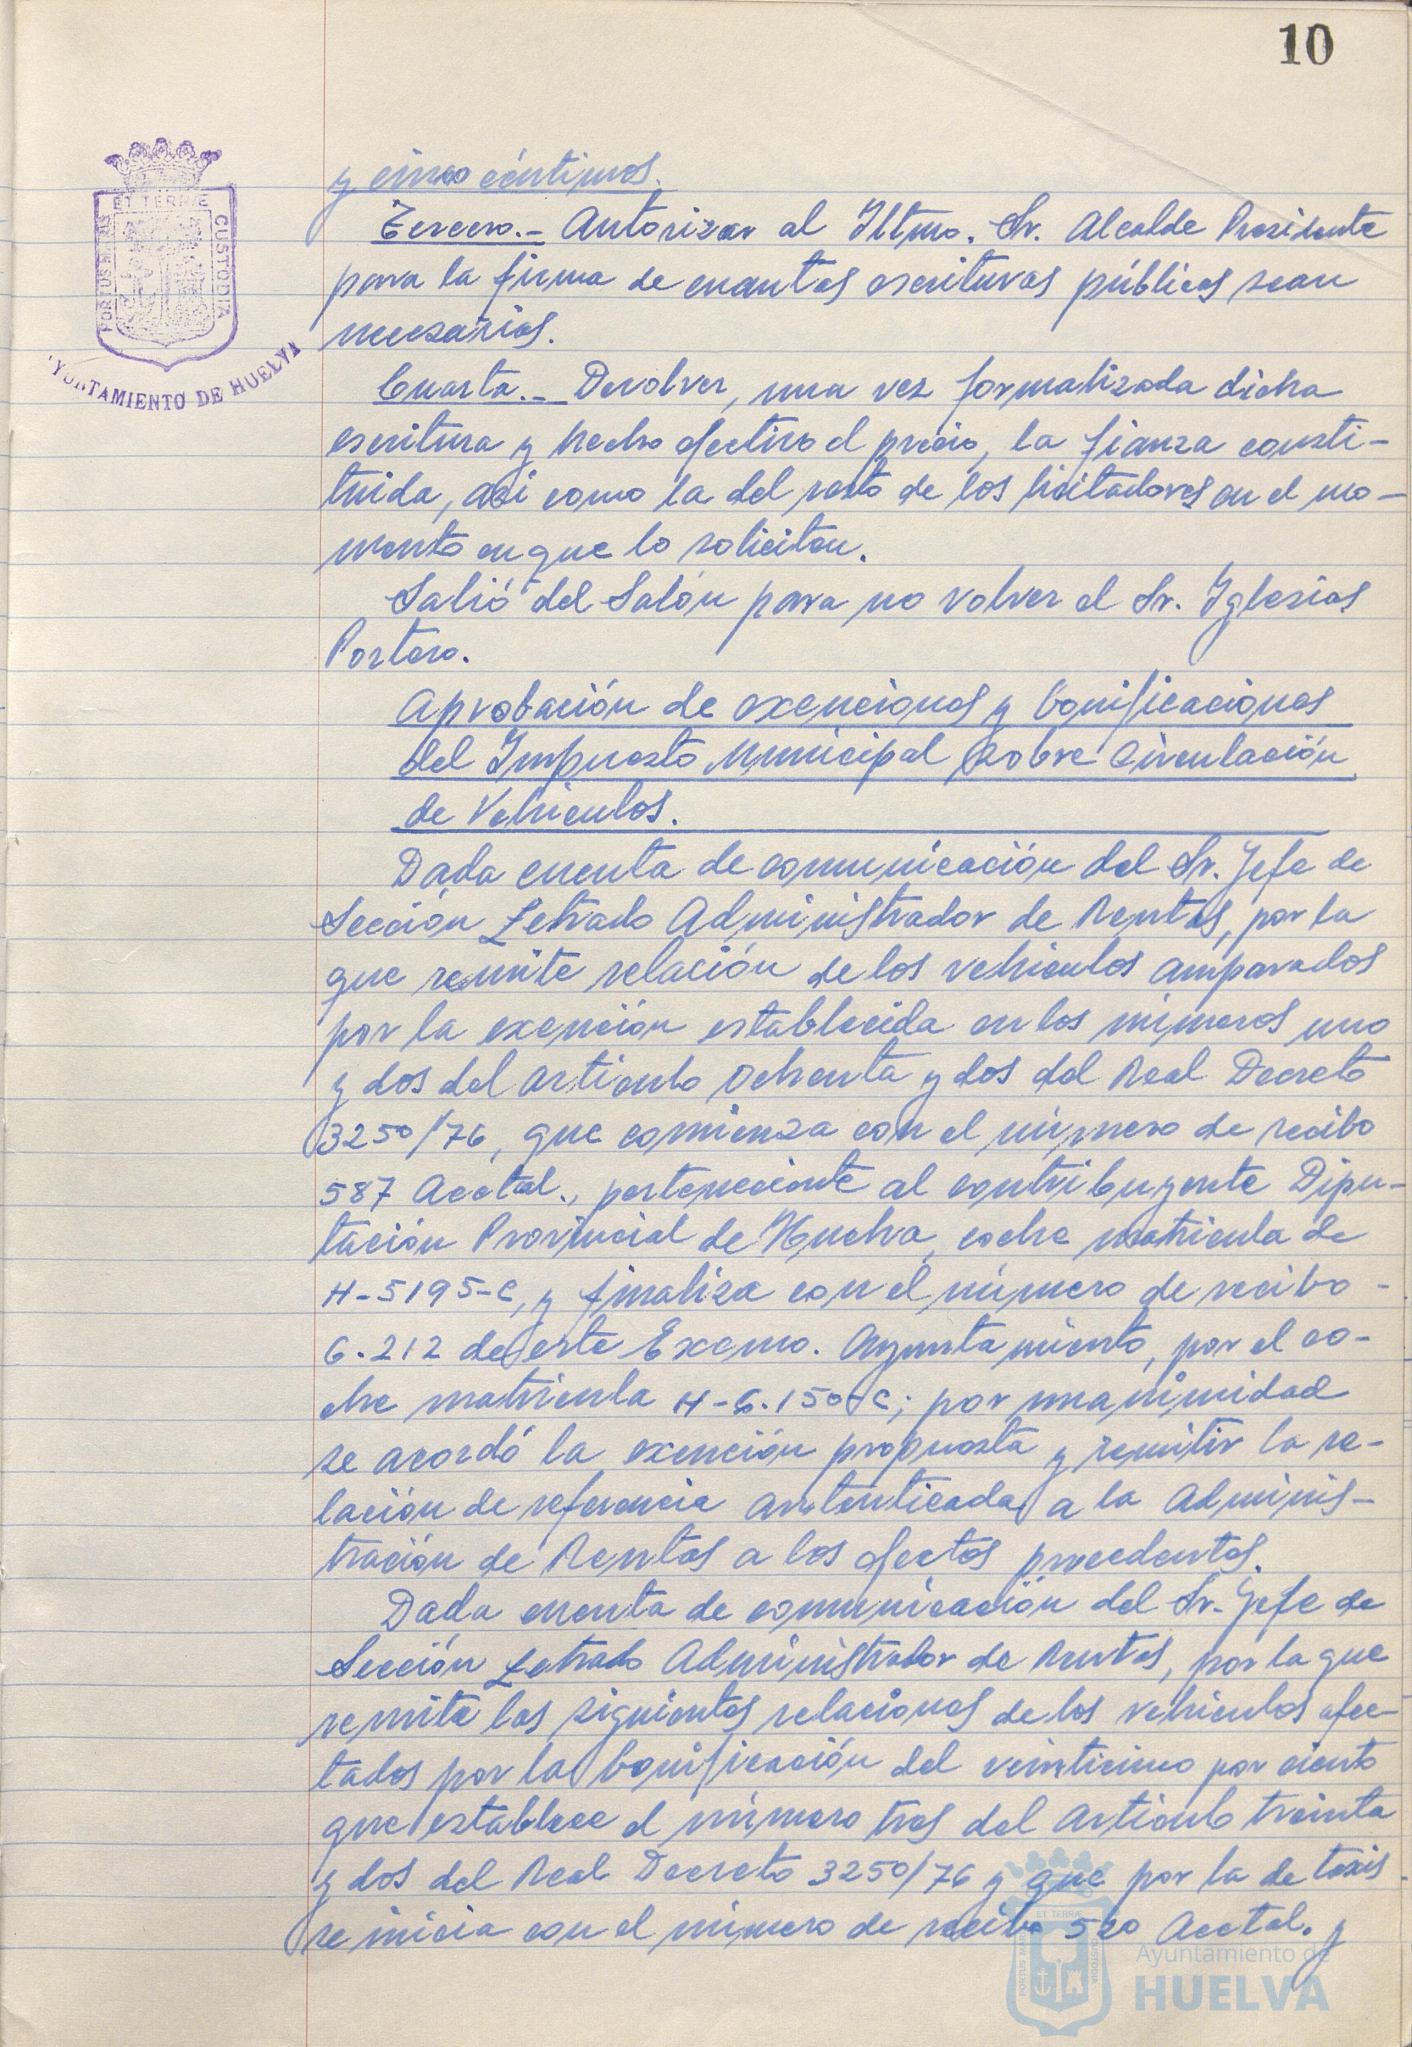 10
ET TERRÆ
PORTUS MARIS
CUSTODIA
AYUNTAMIENTO DE HUELVA
y cinco céntimos.
Tercero.- Autorizar al Iltmo. Sr. Alcalde Presidente
para la firma de cuantas escrituras públicas sean
necesarias.
Cuarta.- Devolver, una vez formalizada dicha
escritura y hecho efectivo el precio, la fianza consti-
tuida, asi como la del resto de los licitadores en el mo-
mento en que lo soliciten.
Salió del Salón para no volver el Sr. Iglesias
Portero.
Aprobación de exenciones y bonificaciones
del Impuesto Municipal sobre Circulación
de Vehiculos.
Dada cuenta de comunicación del Sr. Jefe de
Sección Letrado Administrador de Rentas, por la
que remite relación de los vehiculos amparados
por la exención establecida en los números uno
y dos del artículo ochenta y dos del Real Decreto
3250/76, que comienza con el número de recibo
587 Acctal., perteneciente al contribuyente Dipu-
tación Provincial de Huelva, coche matricula de
H-5195-C, y finaliza con el número de recibo -
6.212 de este Excmo. Ayuntamiento, por el co-
che matricula H-6.150-C; por unanimidad
se acordó la exención propuesta y remitir la re-
lación de referencia autenticada a la Adminis-
tración de Rentas a los efectos procedentes.
Dada cuenta de comunicación del Sr. Jefe de
Sección Letrado Administrador de Rentas, por la que
remite las siguientes relaciones de los vehiculos afec-
tados por la bonificación del veinticinco por ciento
que establece el número tres del Artículo treinta
y dos del Real Decreto 3250/76 y que por la de taxis
se inicia con el número de recibo 520 Acctal. y
ET TERRÆ
PORTUS MARIS
CUSTODIA
Ayuntamiento de
HUELVA